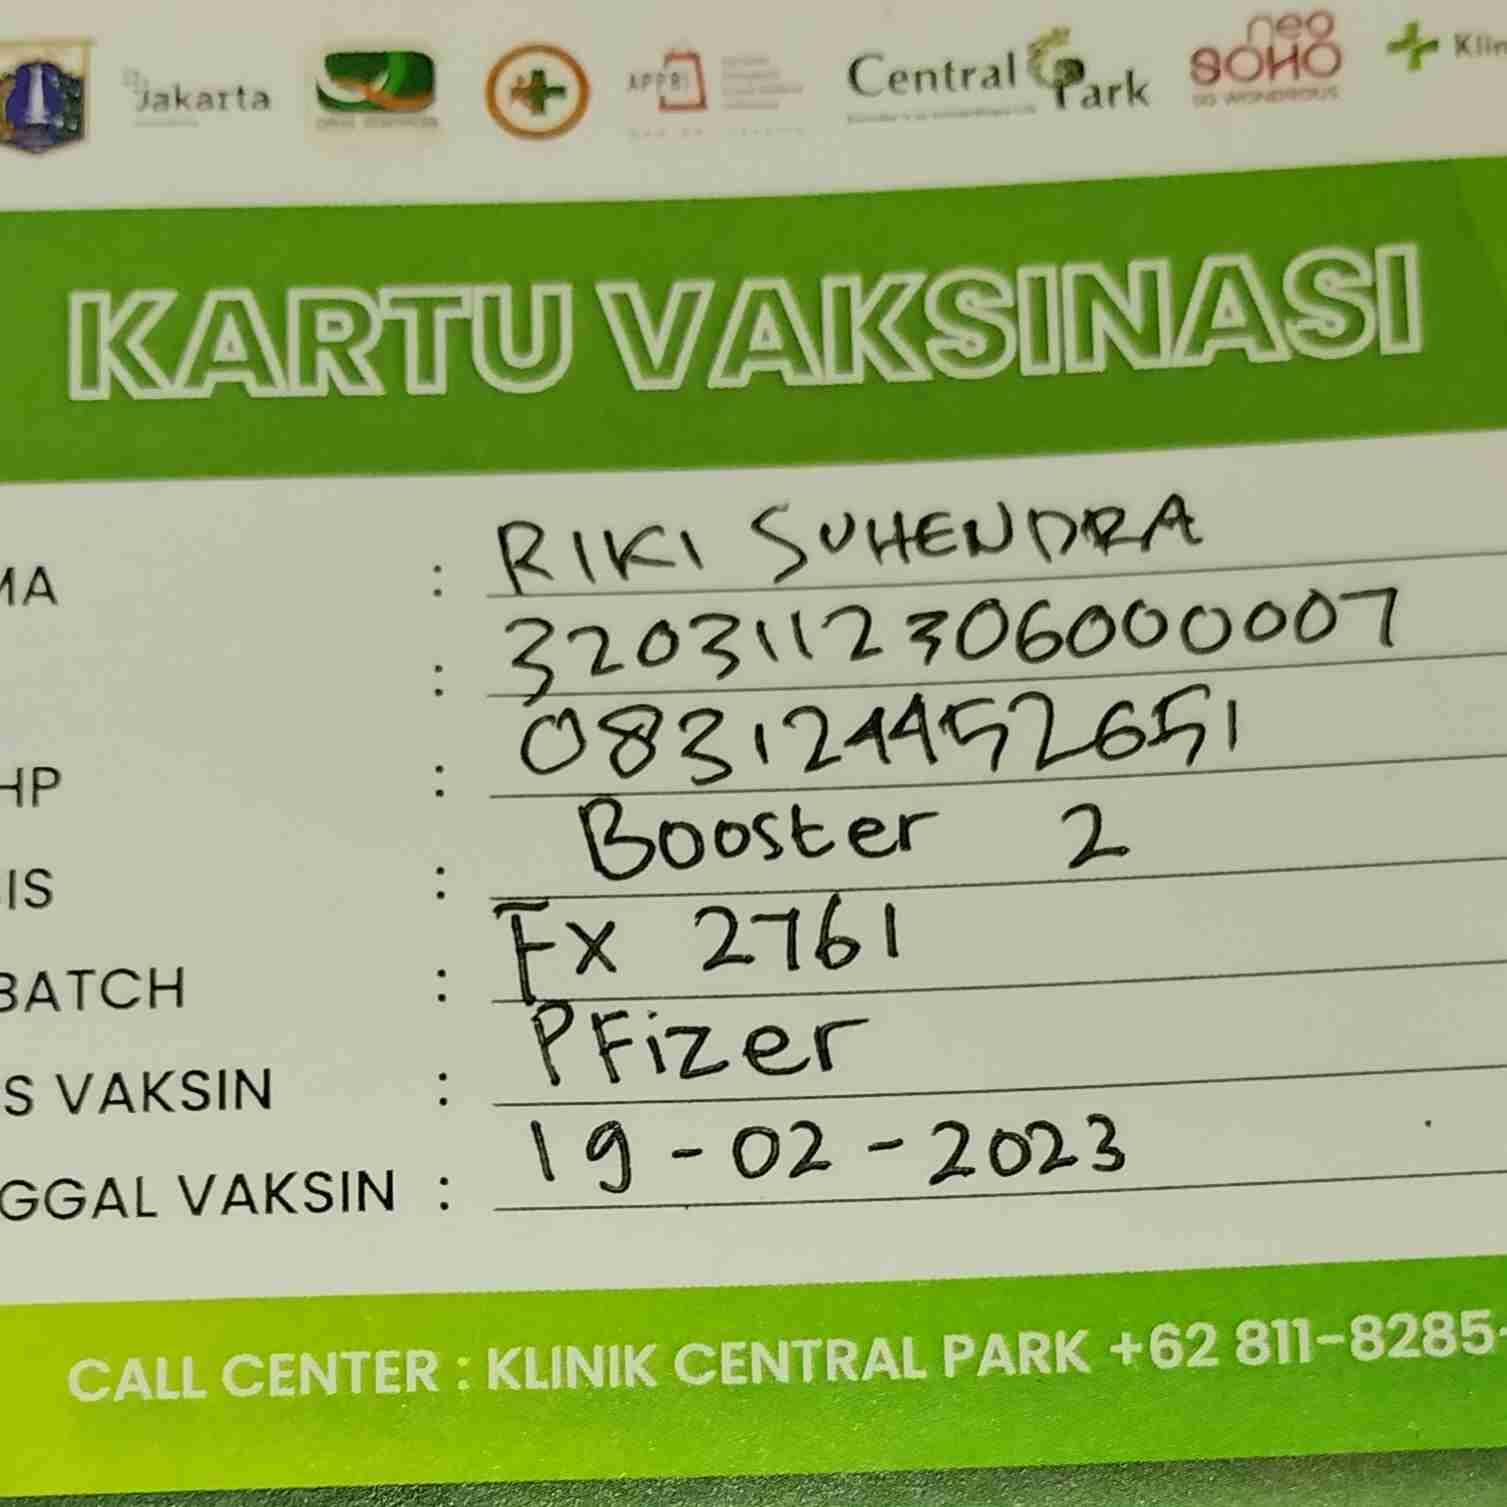 Jakarta
APPBI
Central Park
neo
SOHO
GO WONDROUS
Klin
KARTU VAKSINASI
MA : RIKI SUHENDRA
: 3203112306000007
HP : 083124452651
IS : Booster 2
BATCH : FX 2761
S VAKSIN : PFizer
GGAL VAKSIN : 19-02-2023
CALL CENTER : KLINIK CENTRAL PARK +62 811-8285-